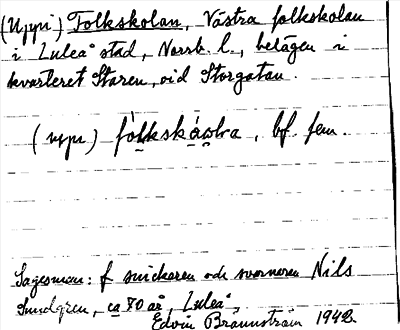 (Uppi) Folkskolan, Västra folkskolan
i Luleå stad, Norrb. l., belägen i
kvarteret Staren, vid Storgatan.
(uppi) fólkskápḷra, bf fem.
Sagesman: f snickaren och svarvaren Nils
Sundgren, ca 70 år, Luleå,
Edvin Brännström 1942.